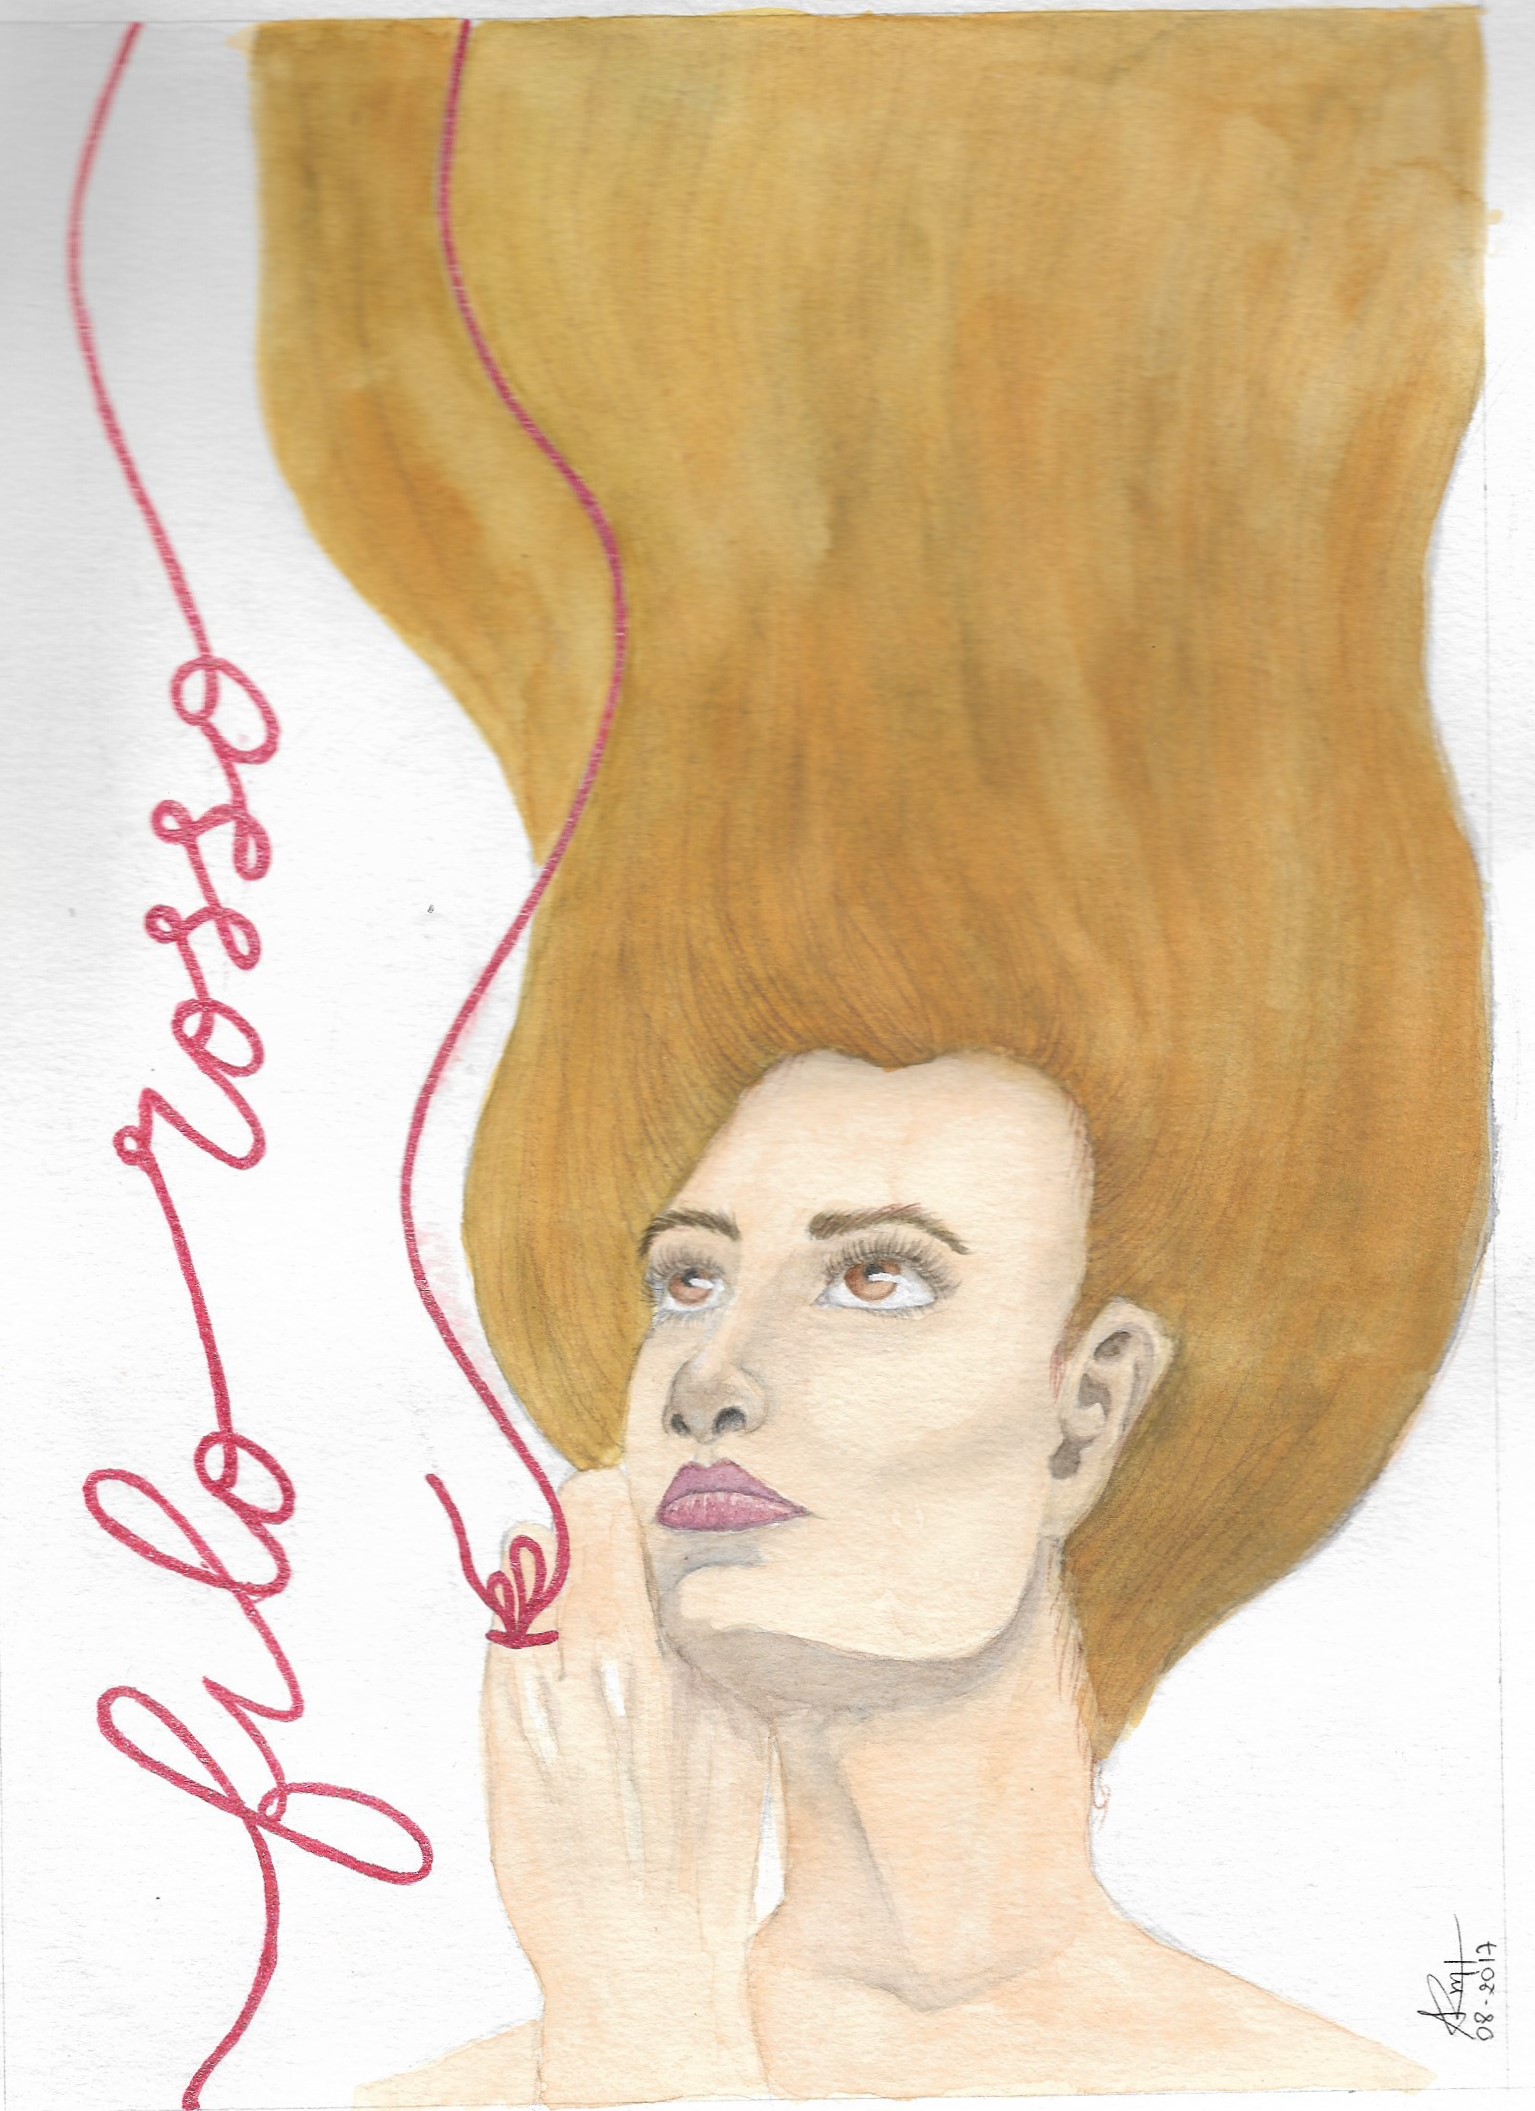 filo rosso
08-2017